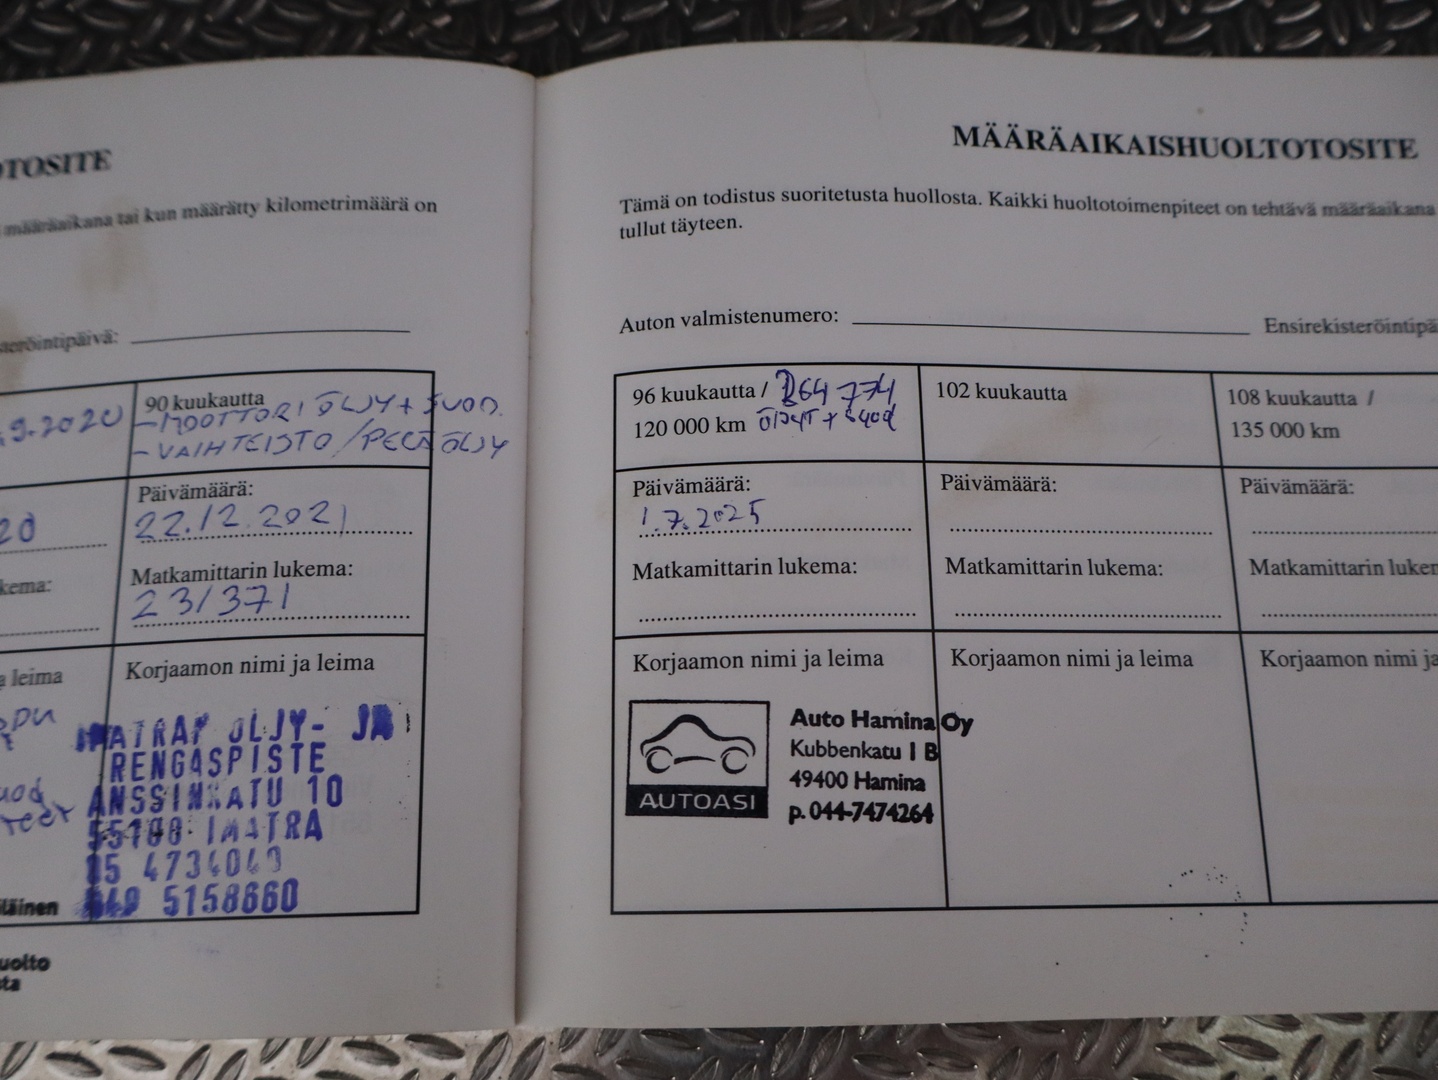 OTOSITE
määräaikana tai kun määrätty kilometrimäärä on
teröintipäivä:
.9.2020
90 kuukautta
- MOOTTORIÖLJY + SUOD.
- VAIHTEISTO / PERÄ ÖLJY
20
Päivämäärä:
22.12.2021
kema:
Matkamittarin lukema:
231371
a leima
Korjaamon nimi ja leima
IMATRAN ÖLJY- JA
RENGASPISTE
ANSSINKATU 10
55100 IMATRA
5158660
läinen
uolto
sta
MÄÄRÄAIKAISHUOLTOTOSITE
Tämä on todistus suoritetusta huollosta. Kaikki huoltotoimenpiteet on tehtävä määräaikana
tullut täyteen.
Auton valmistenumero:
Ensirekisteröintipä
96 kuukautta / 264 774
120 000 km öljyt + suod
102 kuukautta
108 kuukautta /
135 000 km
Päivämäärä:
1.7.2025
Päivämäärä:
Päivämäärä:
Matkamittarin lukema:
Matkamittarin lukema:
Matkamittarin luker
Korjaamon nimi ja leima
Korjaamon nimi ja leima
Korjaamon nimi ja
AUTOASI
Auto Hamina Oy
Kubbenkatu 1 B
49400 Hamina
p. 044-7474264